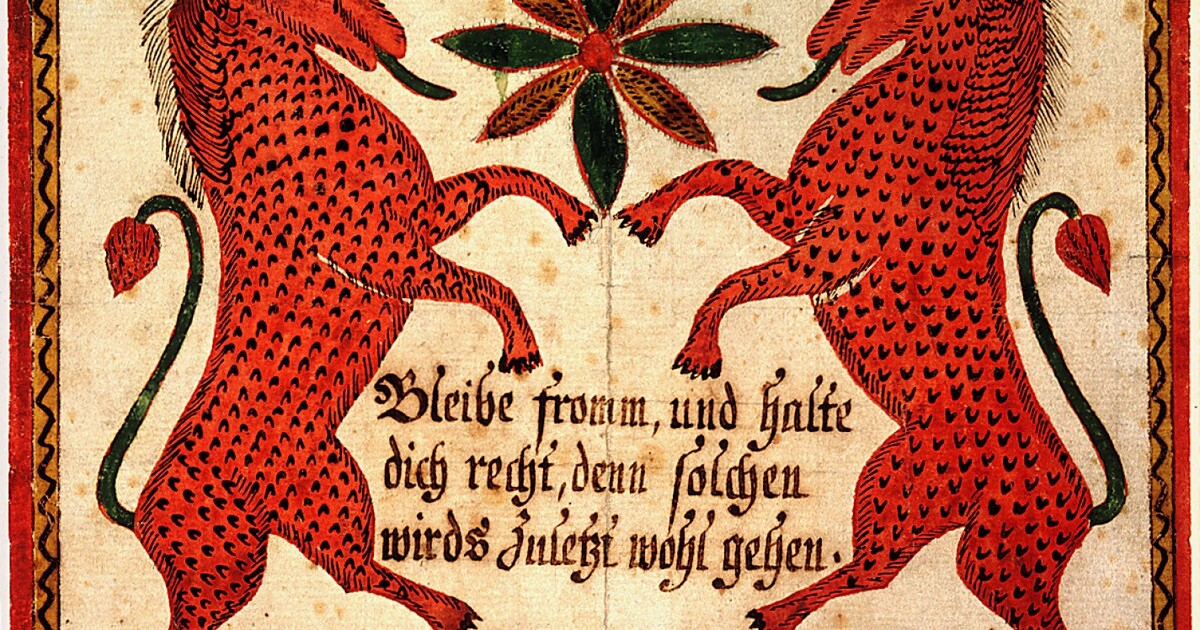 Bleibe fromm, und halte
dich recht, denn solchen
wirds zuletzt wohl gehen.